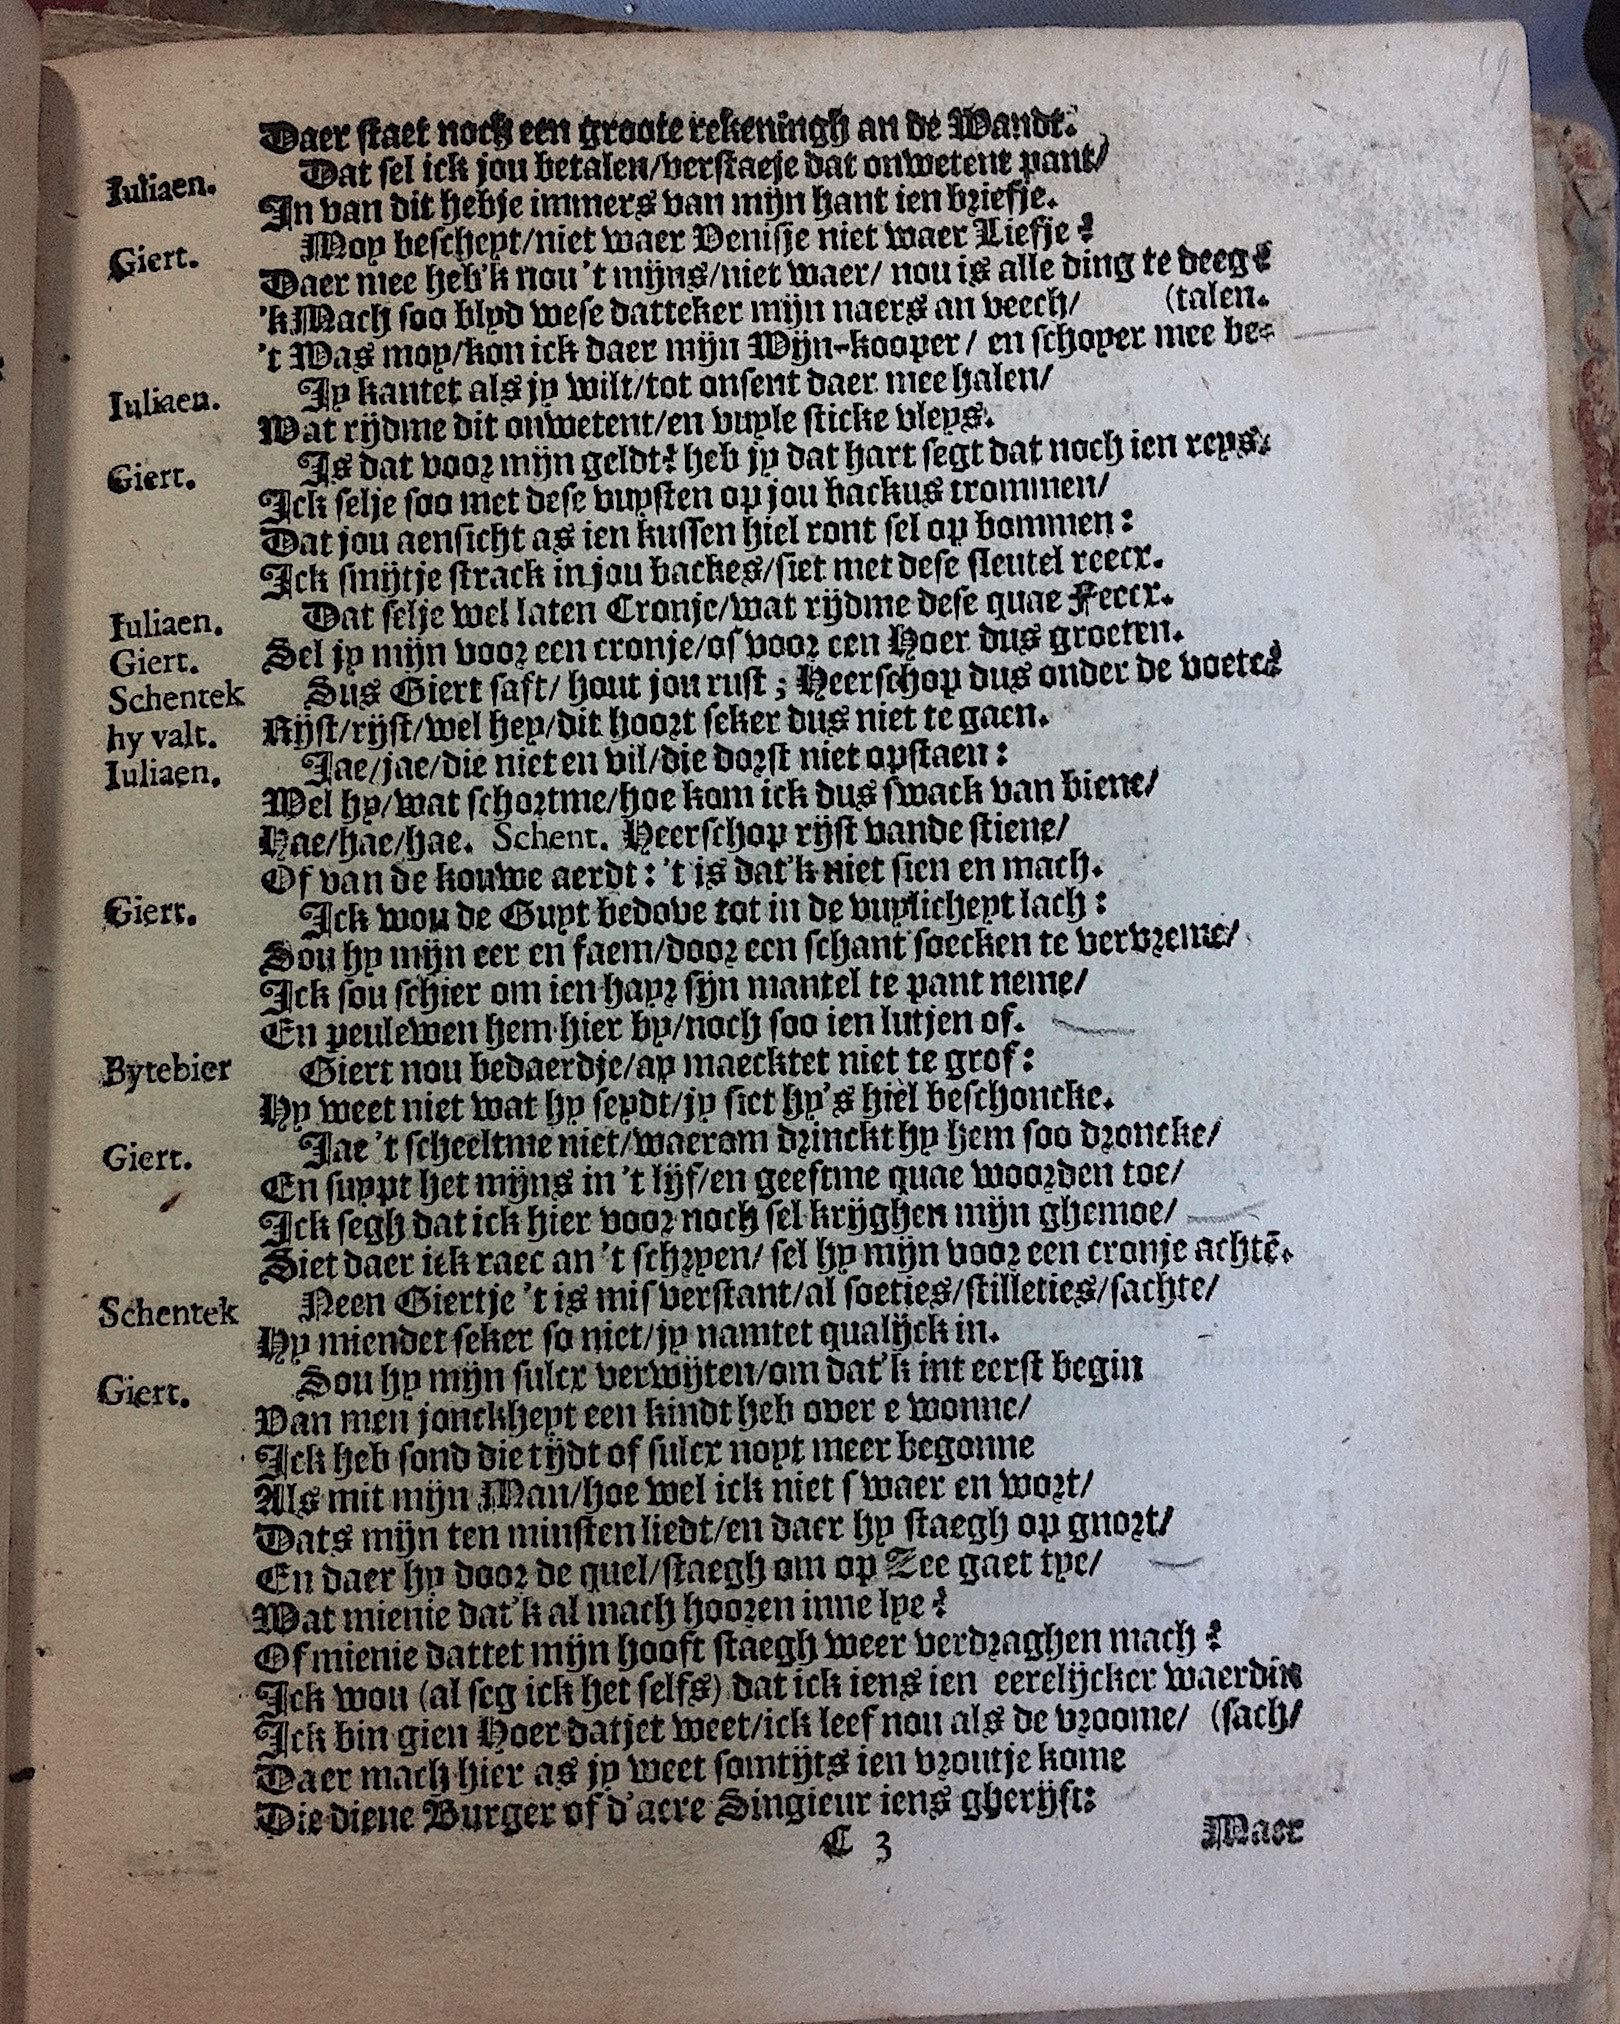 19
Daer staet noch een groote rekeningh an de Wandt.
Iuliaen. Dat sel ick jou betalen/verstaeje dat onwetent pant/
In van dit hebje immers van mijn hant ien briefje.
Giert. Moy bescheyt/niet waer Denisje niet waer Liefje?
Daer mee heb'k nou 't mijns/niet waer/ nou is alle ding te deeg?
'k Mach soo blyd wese datteker mijn naers an veech/ (talen.
't Was moy/kon ick daer mijn Wijn-kooper/ en schoyer mee be-
Iuliaen. Jy kantet als jy wilt/tot onsent daer mee halen/
Wat rijdme dit onwetent/en vuyle sticke vleys.
Giert. Is dat voor mijn geldt? heb jy dat hart segt dat noch ien reys.
Ick selje soo met dese vuysten op jou backus trommen/
Dat jou aensicht as ien kussen hiel ront sel op bommen:
Ick smijtje strack in jou backes/siet met dese sleutel reecx.
Iuliaen. Dat selje wel laten Cronje/wat rijdme dese quae Feecx.
Giert. Sel jy mijn voor een cronje/of voor een Hoer dus groeten.
Schentek Sus Giert saft/ hout jou rust; Heerschop dus onder de voete?
hy valt. Rijst/rijst/wel hey/dit hoort seker dus niet te gaen.
Iuliaen. Jae/jae/die niet en vil/die dorst niet opstaen:
Wel hy/wat schortme/hoe kom ick dus swack van biene/
Hae/hae/hae. Schent. Heerschop rijst vande stiene/
Of van de kouwe aerdt: 't is dat'k niet sien en mach.
Giert. Ick wou de Guyt bedove tot in de vuylicheyt lach:
Sou hy mijn eer en faem/door een schant soecken te vervreme/
Ick sou schier om ien hayr sijn mantel te pant neme/
En peulewen hem hier by/noch soo ien lutjen of.
Bytebier Giert nou bedaerdje/ay maecktet niet te grof:
Hy weet niet wat hy seydt/jy siet hy's hiel beschoncke.
Giert. Jae 't scheeltme niet/waerom drinckt hy hem soo droncke/
En suypt het mijns in 't lijf/en geeftme quae woorden toe/
Ick segh dat ick hier voor noch sel krijghen mijn ghemoe/
Siet daer ick raec an 't schryen/ sel hy mijn voor een cronje achtē.
Schentek Neen Giertje 't is mis verstant/al soeties/stilleties/sachte/
Hy miendet seker so niet/jy namtet qualijck in.
Giert. Sou hy mijn sulcx verwijten/om dat'k int eerst begin
Van men jonckheyt een kindt heb over e wonne/
Ick heb sond die tijdt of sulcx noyt meer begonne
Als mit mijn Man/hoe wel ick niet swaer en wort/
Dats mijn ten minsten liedt/en daer hy staegh op gnort/
En daer hy door de quel/staegh om op Zee gaet tye/
Wat mienie dat'k al mach hooren inne lye?
Of mienie dattet mijn hooft staegh weer verdraghen mach?
Ick wou (al seg ick het selfs) dat ick iens ien eerelijcker waerdin
Ick bin gien Hoer datjet weet/ick leef nou als de vroome/ (sach/
Daer mach hier as jy weet somtijts ien vroutje kome
Die diene Burger of d'aere Singieur iens gherijft:
C 3 Maer